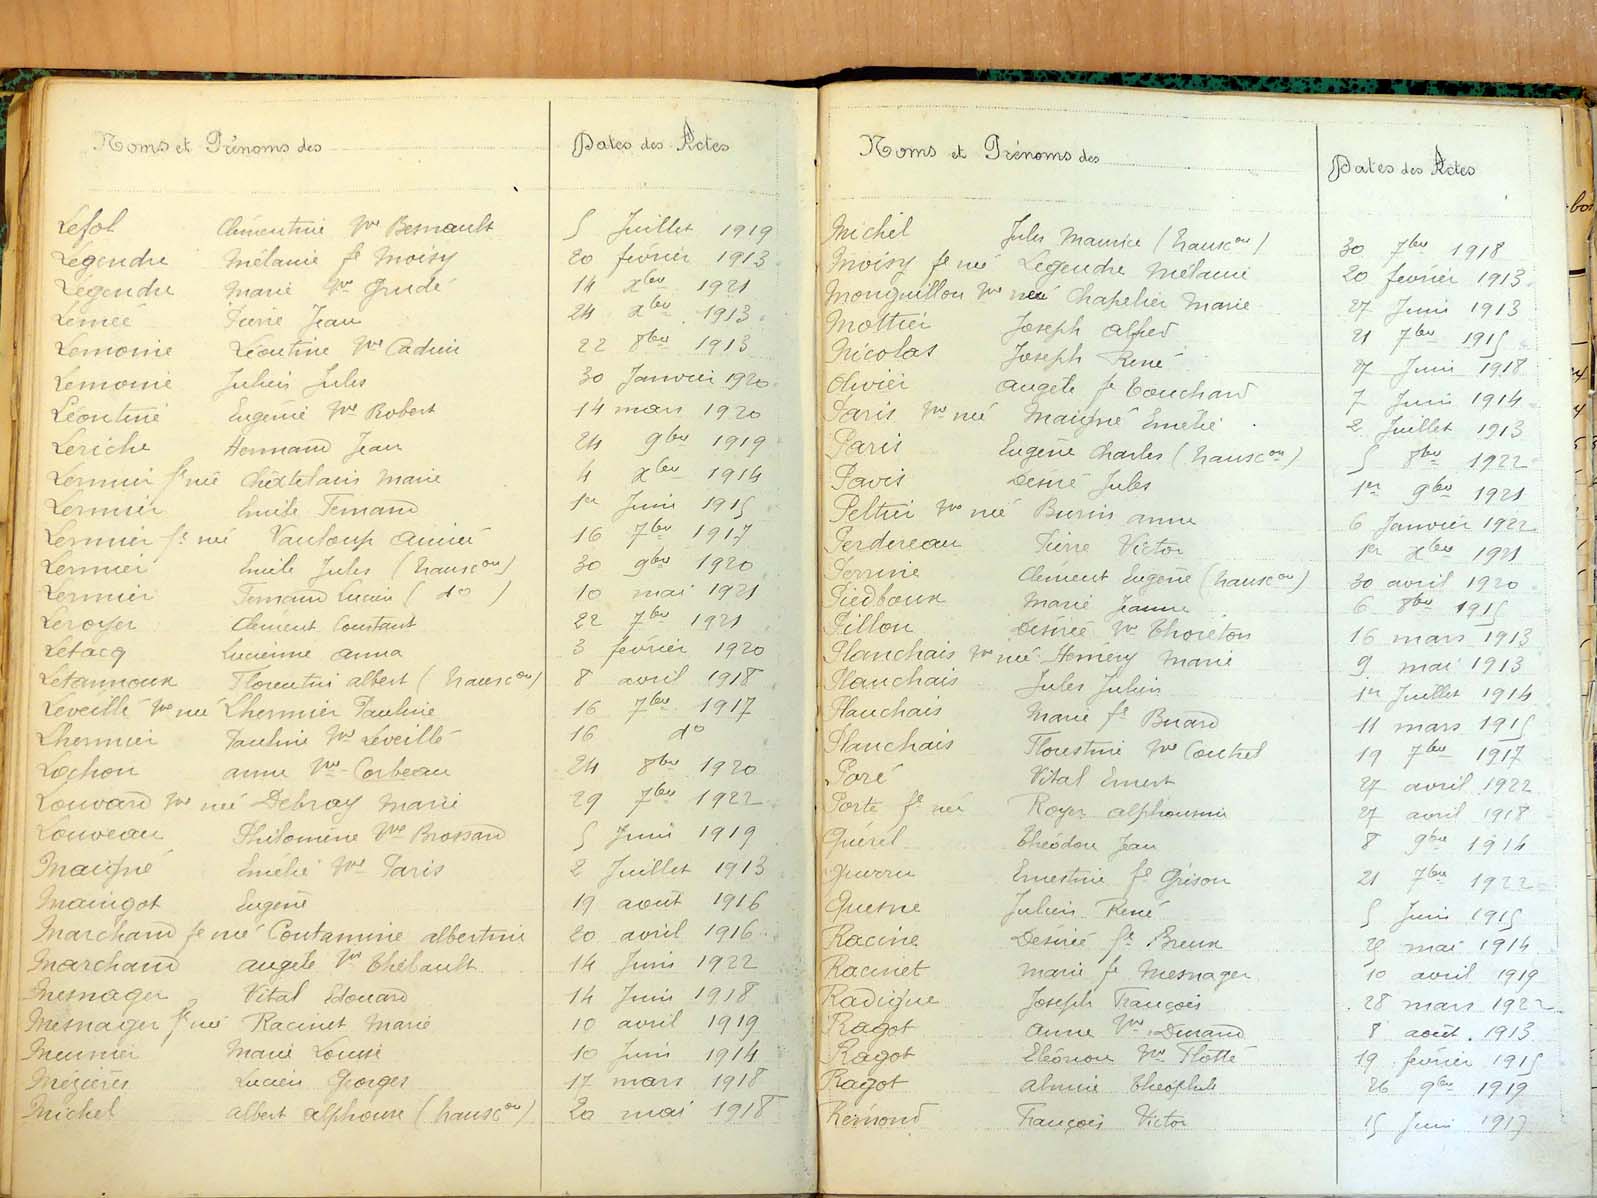 Noms et Prénoms des Dates des Actes
Lefol Clémentine Vve Besnault 5 Juillet 1919
Legendre Mélanie fe Moisy 20 février 1913
Legendre Marie Vve Grudé 14 xbre 1921
Lemée Pierre Jean 24 xbre 1913
Lemoine Léontine Vve Cadieu 22 8bre 1913
Lemoine Julien Jules 30 Janvier 1920
Léontine Eugénie Vve Robert 14 mars 1920
Leriche Hermand Jean 24 9bre 1919
Lermier fe née Châtelais Marie 4 xbre 1914
Lermier Emile Fernand 1er Juin 1915
Lermier fe née Vauloup Aimée 16 7bre 1917
Lermier Emile Jules (transcon) 30 9bre 1920
Lermier Fernand Lucien (do) 10 mai 1921
Leroyer Clément Constant 22 7bre 1921
Letacq Lucienne Anna 3 février 1920
Letannoux Florentin Albert (transcon) 8 avril 1918
Leveillé Vve née Lhermier Pauline 16 7bre 1917
Lhermier Pauline Vve Leveillé 16 do
Lochon Anne Vve Corbeau 24 8bre 1920
Louvard Vve née Debray Marie 29 7bre 1922
Louveau Philomène Vve Brossard 5 Juin 1919
Maigné Emélie Vve Paris 2 Juillet 1913
Maingot Eugène 19 août 1916
Marchand fe née Contamine Albertine 20 avril 1916
Marchand Angèle Vve Thébault 14 Juin 1922
Mesnager Vital Edouard 14 Juin 1918
Mesnager fe née Racinet Marie 10 avril 1919
Meunier Marie Louise 10 Juin 1914
Mézières Lucien Georges 17 mars 1918
Michel Albert Alphonse (transcon) 20 mai 1918
Noms et Prénoms des Dates des Actes
Michel Jules Maurice (transcon) 30 7bre 1918
Moisy fe née Legendre Mélanie 20 février 1913
Monguillon Vve née Chapelier Marie 27 Juin 1913
Mottier Joseph Alfred 21 7bre 1915
Nicolas Joseph René 27 Juin 1918
Olivier Angèle fe Touchard 7 Juin 1914
Paris Vve née Maigné Emélie 2 Juillet 1913
Paris Eugène Charles (transcon) 5 8bre 1922
Pavis Désiré Jules 1er 9bre 1921
Peltier Vve née Burin Anne 6 Janvier 1922
Perdereau Pierre Victor 1er xbre 1921
Perrine Clément Eugène (transcon) 30 avril 1920
Piedboux Marie Jeanne 6 8bre 1915
Pillon Désirée Vve Thoreton 16 mars 1913
Planchais Vve née Hemery Marie 9 mai 1913
Planchais Jules Julien 1er Juillet 1914
Planchais Marie fe Buard 11 mars 1915
Planchais Florestine Vve Coutrel 19 7bre 1917
Poré Vital Ernest 27 avril 1922
Porte fe née Royer Alphonsine 27 avril 1918
Querel Théodore Jean 8 9bre 1914
Queru Ernestine fe Grison 21 7bre 1922
Quesne Julien René 5 Juin 1915
Racine Désirée fe Breux mai 1914
Racinet Marie fe Mesnager 10 avril 1919
Radigue Joseph François 28 mars 1922
Ragot Anne Vve Durand 8 août 1913
Ragot Eléonore Vve Flotté 19 février 1915
Ragot Almire Théophile 26 9bre 1919
Rémond François Victor 15 Juin 1917